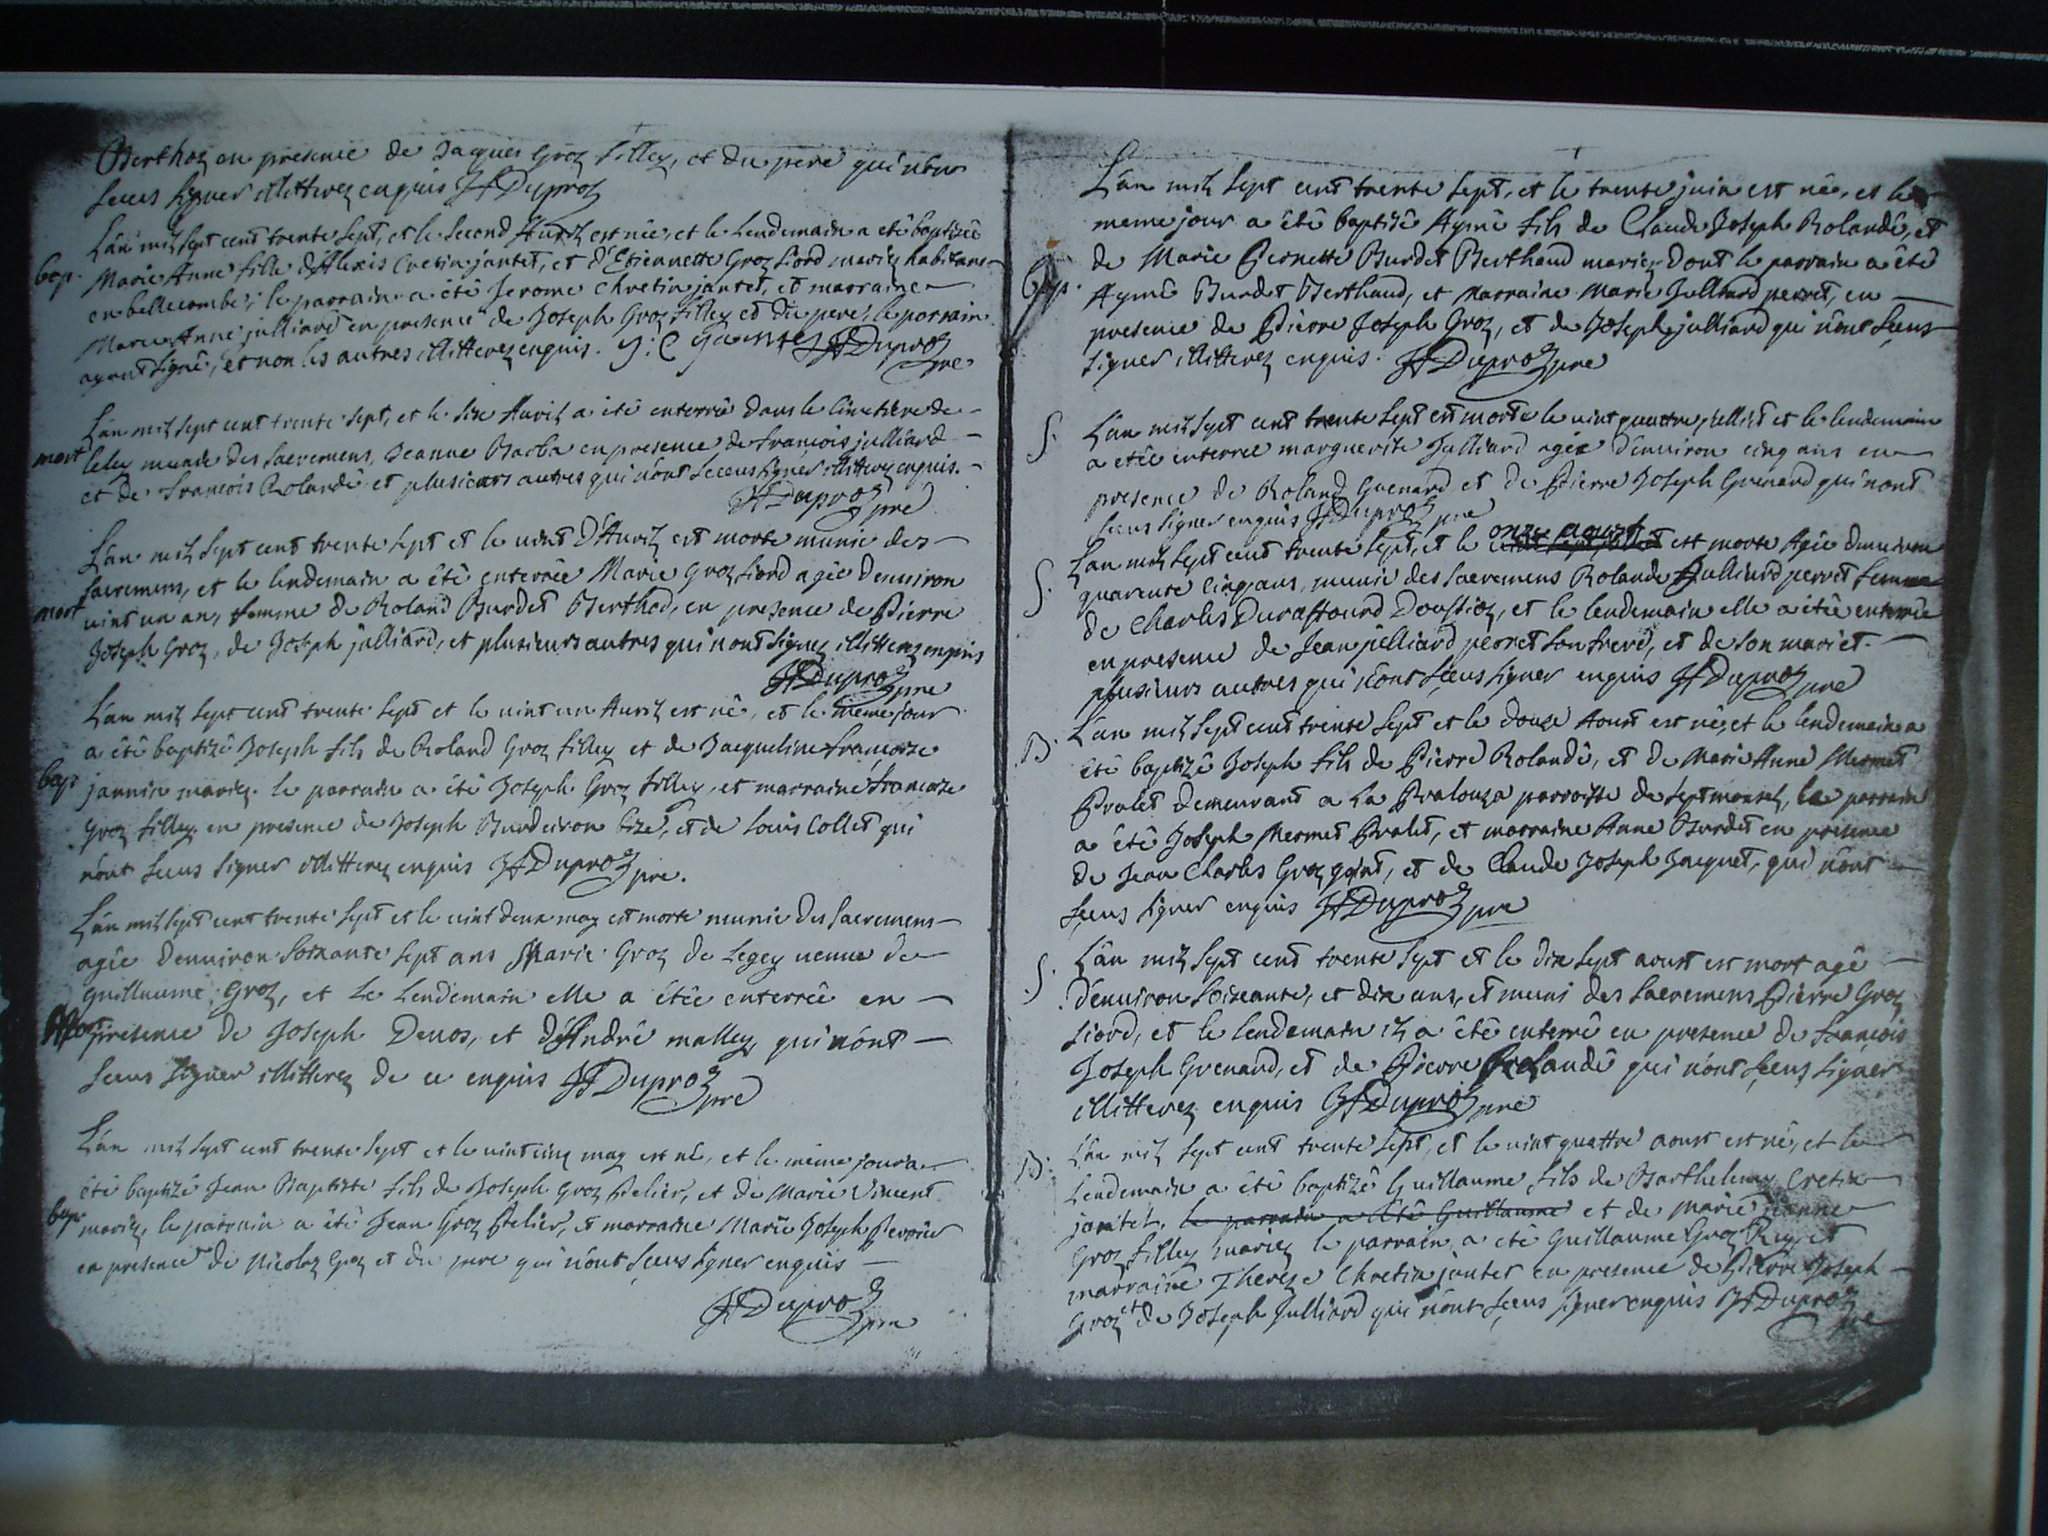 Berthoz en presence de Jacques Groz filley, et du pere qui n'ont
sceus signer illitterez enquis JF Duproz
L'an mil sept cent trente sept, et le second Avril est née, et le lendemain a été baptizée
bap. Marie Anne fille d'Alexis Cretin jantet, et d'Etiennette Groz siord mariez habitans
en bellecombe; le parrain a été Jerome Chretin jantet, et marraine
Marie Anne julliard en presence de Joseph Groz filley et du pere, le parrain
ayant signé, et non les autres illitterez enquis. JF Duproz
pre
L'an mil sept cent trente sept, et le six Avril a été enterrée dans le cimetiere de
mort leley munie des sacremens, Jeanne Barba en presence de francois julliard
et de francois Rolandé et plusieurs autres qui n'ont sceeus signer illitterez enquis.
JF Duproz pre
L'an mil sept cent trente sept et le vint d'Avril est morte munie des
sacremens, et le lendemain a été enterrée Marie Groz siord agée d'environ
mort vint un an, femme de Roland Burdet Berthod, en presence de Pierre
Joseph Groz, de Joseph julliard, et plusieurs autres qui n'ont signez illitterez enquis
JF Duproz pre
L'an mil sept cent trente sept et le vint un Avril est né, et le meme jour
a été baptizé Joseph fils de Roland Groz filley et de Jacqueline francoise
bap. jannin mariez. le parrain a été Joseph Groz filley, et marraine francoise
Groz filley en presence de Joseph Burdeiron lizé, et de Louis Collet qui
n'ont sceus signer illitterez enquis JF Duproz pre.
L'an mil sept cent trente sept et le vint deux may est morte munie des sacremens
agée d'environ soixante sept ans Marie Groz de Legey veuve de
guillaume Groz, et le lendemain elle a étée enterrée en
Mort presence de Joseph Devos, et d'André malley, qui n'ont
sceus signer illitterez de ce enquis JF Duproz
pre
L'an mil sept cent trente sept et le vint cinq may est né, et le meme jour a
été baptizé Jean Baptiste fils de Joseph Groz Pelier, et de Marie Vincent
bap. mariez, le parrain a été Jean Groz Pelier, et marraine Marie Joseph Perrier
en presence de Nicolas Groz et du pere qui n'ont sceus signer enquis
JF Duproz
pre
L'an mil sept cent trente sept, et le trente juin est né, et le
meme jour a été baptizé Aymé fils de Claude Joseph Rolandé, et
de Marie Pernette Burdet Berthaud mariez dont le parrain a été
bap. Aymé Burdet Berthaud, et Marraine Marie Julliard perret, en
presence de Pierre Joseph Groz, et de Joseph julliard qui n'ont sceus
signer illitterez enquis. JF Duproz pre
S. L'an mil sept cent trente sept est morte le vint quattre juillet et le lendemain
a étée enterrée marguerite Julliard agée d'environ cinq ans en
presence de Roland Grenard et de Pierre Joseph Grenard qui n'ont
sceus signer enquis JF Duproz pre
L'an mil sept cent trente sept, et le onze aoust est morte Agée d'environ
S. quarente cinq ans, munie des sacremens Rolande Julliard perret femme
de Charles Duraffourd Doustioz, et le lendemain elle a étée enterrée
en presence de Jean julliard perret son frere, et de son mari et
plusieurs autres qui n'ont sceeus signer enquis JF Duproz pre
L'an mil sept cent trente sept et le douze Aoust est né, et le lendemain a
B. été baptizé Joseph fils de Pierre Rolandé, et de Marie Anne Mermet
Pralet demeurant a La Pralouza parroisse de septmoncel, le parrain
a été Joseph Mermet Pralet, et marraine Anne Burdet en presence
de Jean Charles Groz goint, et de Claude Joseph Jacquet, qui n'ont
sceus signer enquis JF Duproz pre
S. L'an mil sept cent trente sept et le dix sept aoust est mort agé
d'environ soixante, et dix ans, et muni des sacremens Pierre Groz
siord, et le lendemain il a été enterré en presence de francois
Joseph Grenard, et de Pierre Rolandé qui n'ont sceus signer
illitterez enquis JF Duproz pre
B. L'an mil sept cent trente sept, et le vint quattre aoust est né, et le
lendemain a été baptizé Guillaume fils de Barthelemy Cretin
jantet, le parrain a été Guillaume et de Marie jeanne
Groz filley mariez le parrain a été Guillaume Groz Rey, et
marraine Thereze Chretin jantet en presence de Pierre Joseph
Groz et de Joseph Julliard qui n'ont sceus signer enquis JF Duproz
pre